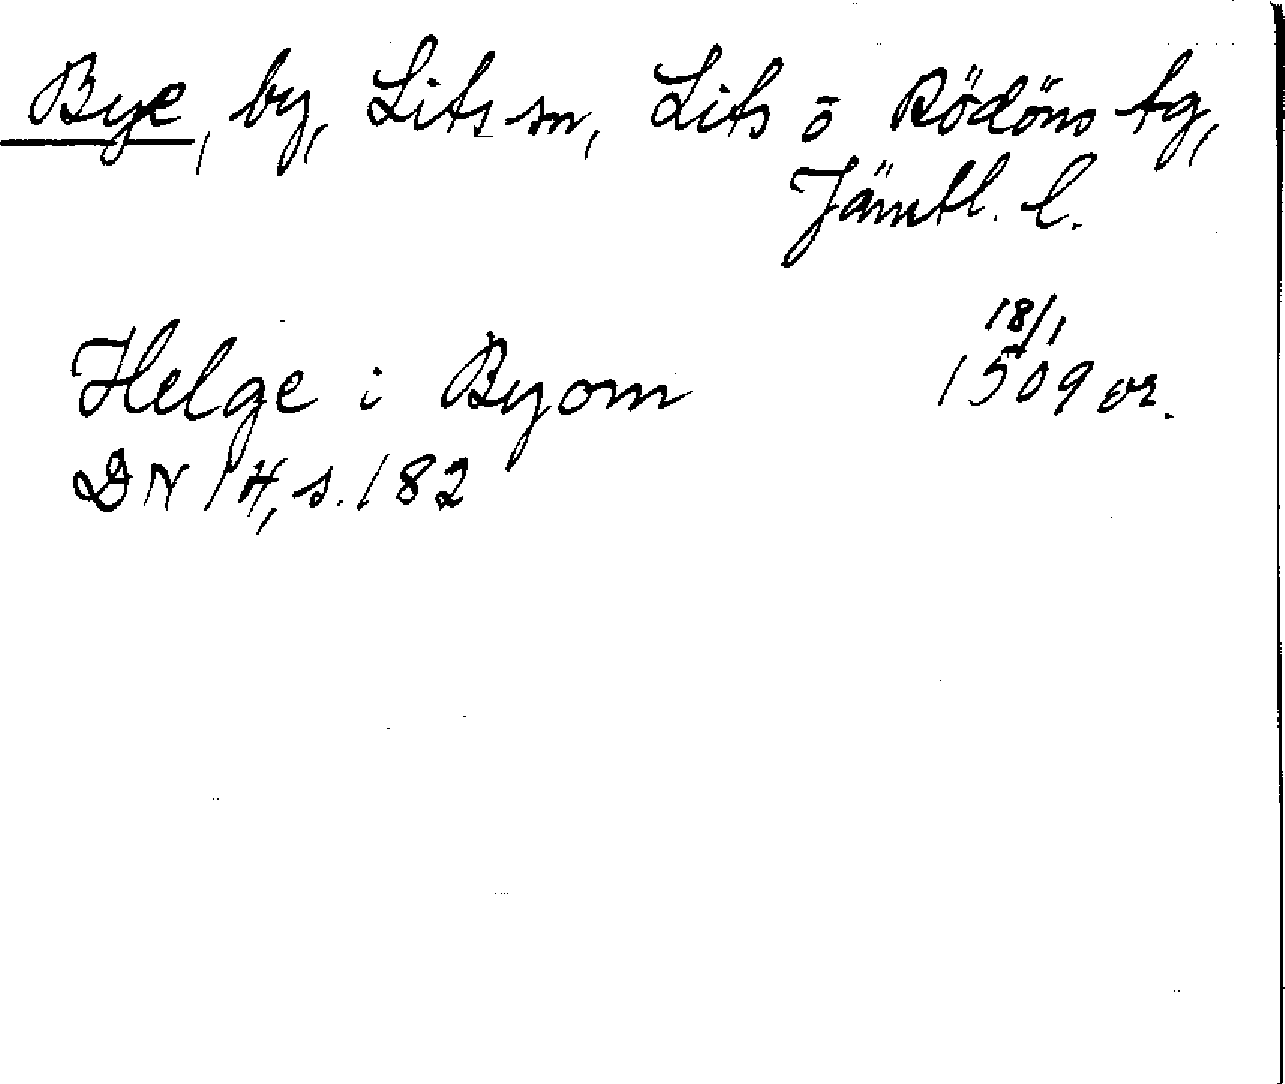 Bye, by, Lits sn, Lits o Rödöns tg,
Jämtl. l.
Helge i Byom 18/1 1509 or.
DN 14, s. 182